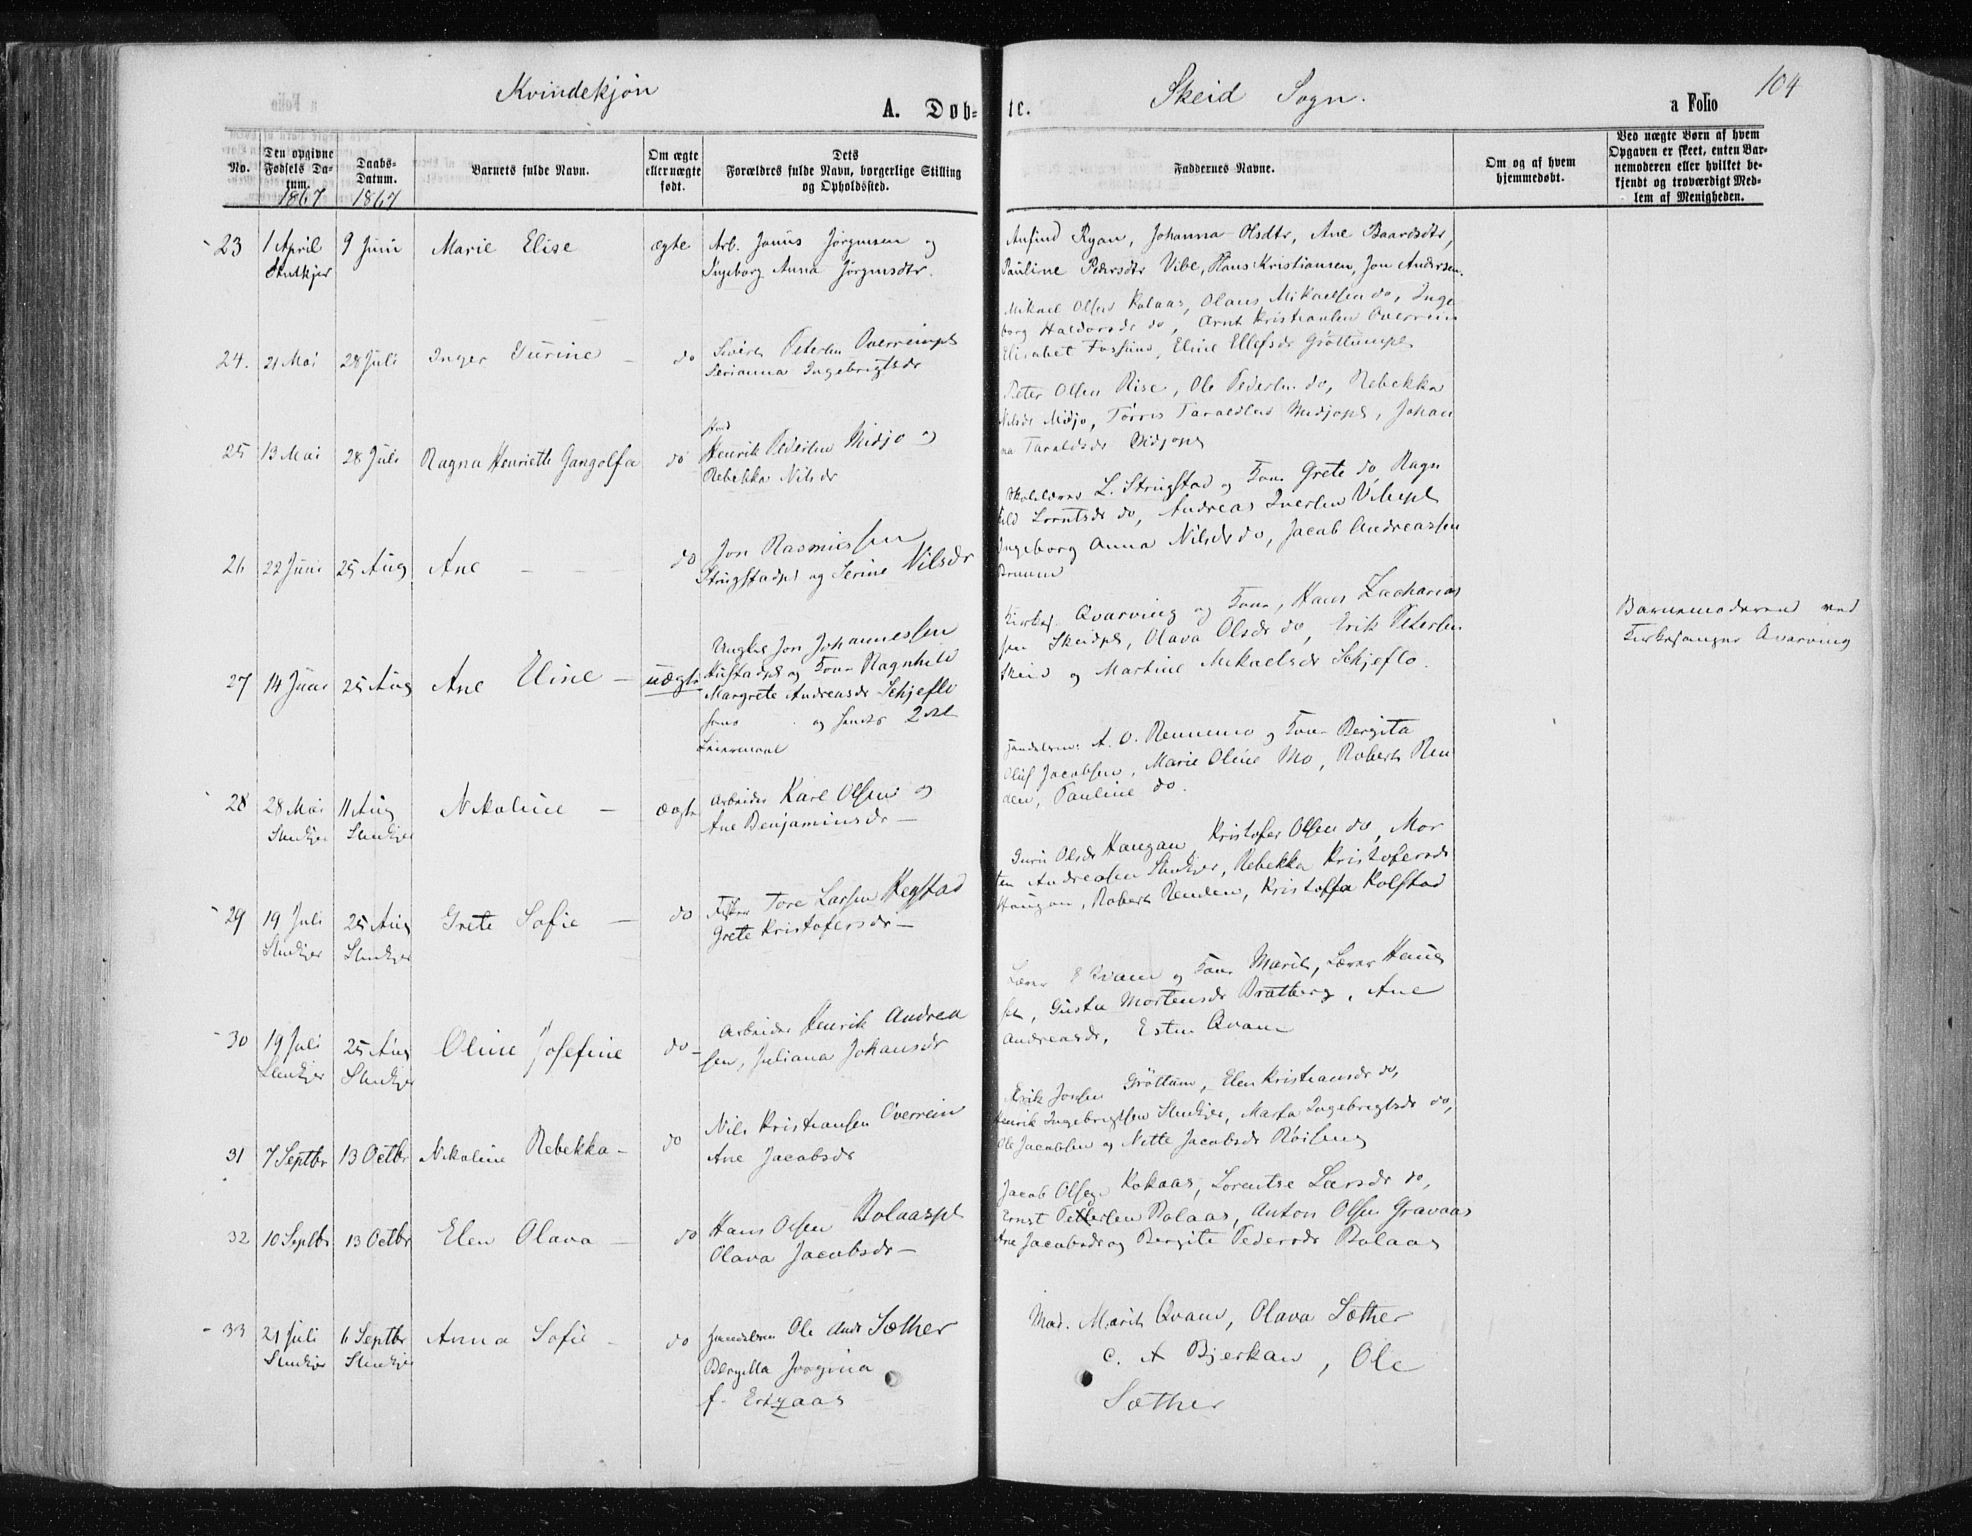 Kvindekjøn
A. Døb-
No.
Den opgivne Fødsels Datum.
1867
Daabs-Datum.
1867
Barnets fulde Navn.
Om ægte eller uægte født.
Dets Forældres fulde Navn, borgerlige Stilling og Opholdssted.
23 1 April 9 Juni Marie Elise ægte Arb. Jonius Jörgensen og
Ingeborg Anna Jörgensdtr.
24. 21 Mai 28 Juli Inger Turine — do Sivert Petersen Overreinpl
Serianna Ingebrigtsdr
25 13 Mai 28 Juli Ragna Henriette Gangolfa do
Henrik Pedersen Midjo og
Rebekka Nilsdr
26 22 Juni 25 Aug Ane — do Jon Rasmussen
Strugstadpl og Serine Nilsdr
27 14 Juni 25 Aug Ane Eline — uægte
Ungkl Jon Johannessen
Austadpl og Ragnhild
Margrete Andreasdr Schjeflo
hans og hendes 2det
Leiermaal
28 28 Mai 11 Aug Nikoline — ægte Arbeider Karl Olsen og
Stenkjer Stenkjer Ane Benjaminsdr —
29 19 Juli 25 Aug Grete Sofie — do Tore Larsen Hegstad
Stenkjer Stenkjer Grete Kristofersdr —
30 19 Juli 25 Aug Oline Josefine do — Arbeider Henrik Andrea
Stenkjer Stenkjer sen, Juliana Johansdr
31 7 Septbr 13 Octbr Nikoline Rebekka — do Nils Kristiansen Överrein
Ane Jacobsdr
32 10 Septbr 13 Octbr Elen Olava — do Hans Olsen Bolaaspl
Olava Jacobsdr —
33 21 Juli 6 Septbr Anna Sofie — do Ole Andr Sæther
Stenkjer Stenkjer Jorgina
f.
te.
Skeid Sogn.
a Folio
104
Faddernes Navne.
Om og af hvem hjemmedøbt.
Ved uægte Børn af hvem Opgaven er skeet, enten Barnemoderen eller hvilket bekjendt og troværdigt Medlem af Menigheden.
Anfind Ryan, Johanna Olsdtr, Ane Baardsdtr,
Pauline Pedersdtr Vibe, Hans Kristiansen, Jon Andersen.
Mikael Olsen Bolaas, Olaus Mikaelsen do, Inge
borg Haldorsdr do, Arnt Kristiansen Overrein
Elisabet Fossum, Eline Ellefsdr Gröttumpl
Peter Olsen Rise, Ole Pedersen do, Rebekka
Nilsdr Midjo, Törris Taraldsen Midjopl, Johan
na Taraldsdr Midjopl
L. Strugstad og Grete do, Ragn
hild Lorntsdr do, Andreas Iversen Vibepl
Ingeborg Anna Nilsdr do, Jacob Andreassen
Qvarving og Hans Zacharias
sen Skeidpl, Olava Olsdr do, Erik Petersen
Skeid og Martine Mikaelsdr Schjeflo.
Barnemoderen ved
Kirkesanger Qvarving
A. O. Rennemo og Bergita
Oluf Jacobsen, Marie Oline Mo, Robert Ren
den, Pauline do.
Guru Olsdr Haugan, Kristofer Olsen do, Mor
ten Andreasen Stenkjer, Rebekka Kristofersdr
Haugan, Robert Renden, Kristoffa Kolstad
Qvam og Marit, Lærer
Gusta Mortensdr Bratberg, Ane
Andreasdr, Esten Qvam
Erik Jonsen Gröttum, Elen Kristiansdr do,
Henrik Ingebrigtsen Stenkjer, Marta Ingebrigtsdr do,
Ole Jacobsen og Nette Jacobsdr Röising
Jacob Olsen Lorentse Larsdr do,
Ernst Petersen Bolaas, Anton Olsen Gravaas
Ane Jacobsdr og Bergite Pedersdr Bolaas
Mad. Marit Qvam, Olava Sæther
C. A Bjerkan, Ole
Sæther